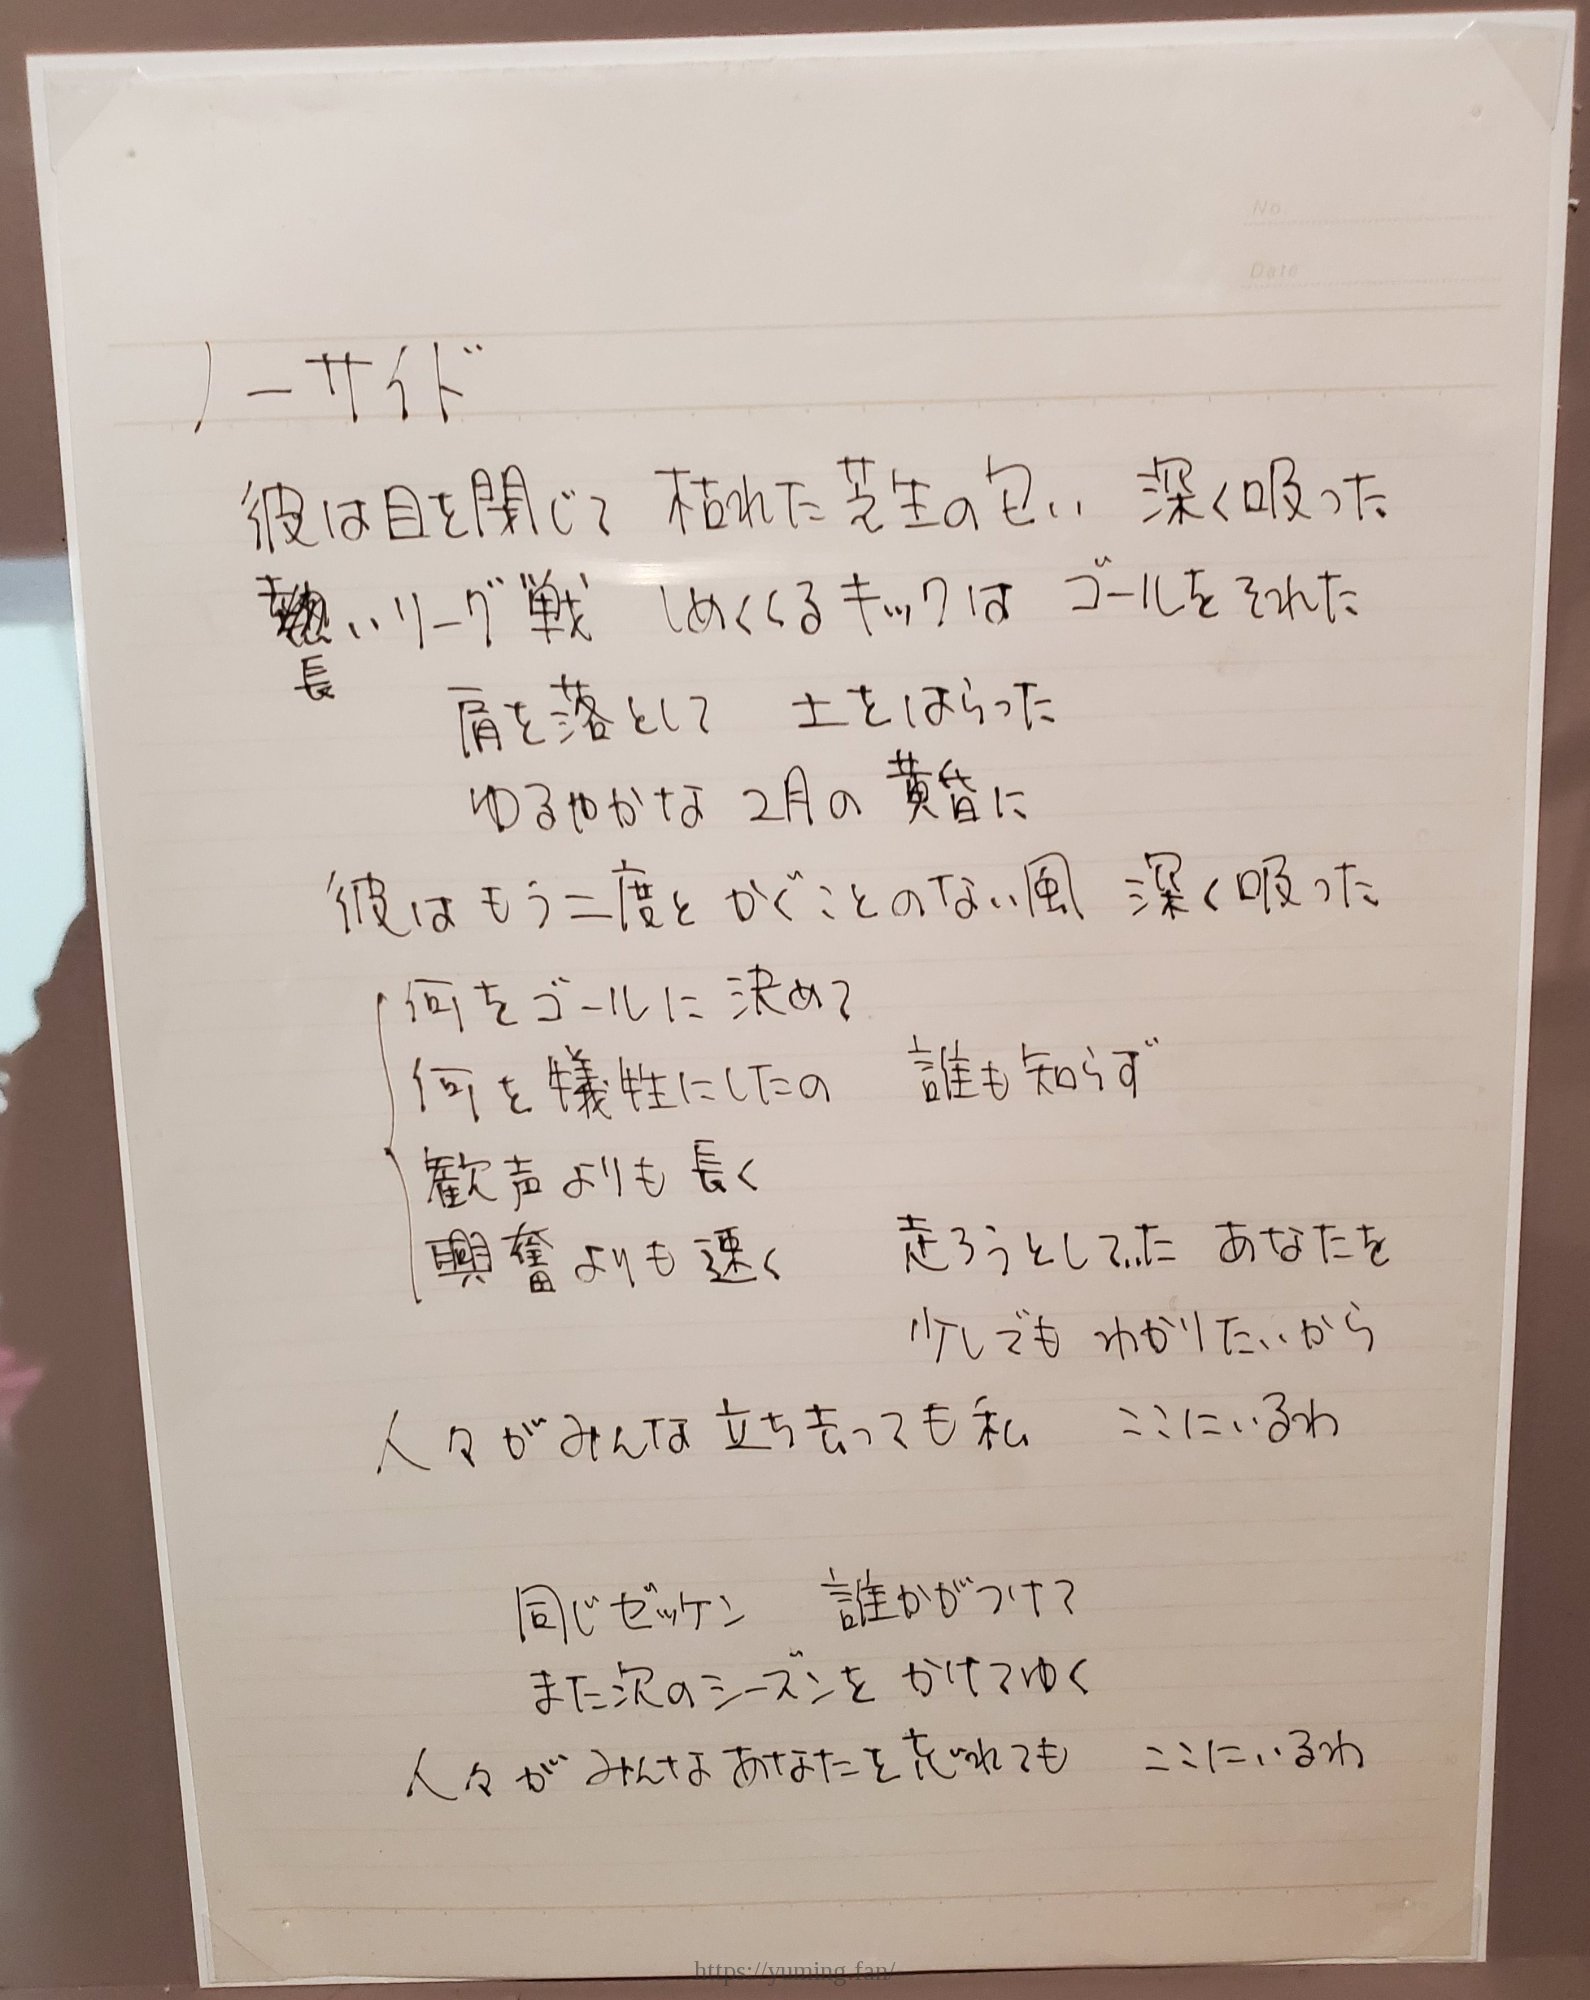 No.
Date
ノーサイド
彼は目を閉じて 枯れた芝生の匂い 深く吸った
いリーグ戦 しめくくるキックは ゴールをそれた
長
肩を落として 土をはらった
ゆるやかな 2月の 黄昏に
彼はもう二度と かぐことのない風 深く吸った
何をゴールに 決めて
何を犠牲にしたの 誰も知らず
歓声よりも 長く
興奮よりも 速く 走ろうとしていた あなたを
少しでも わかりたいから
人々がみんな 立ち去っても 私 ここにいるわ
同じゼッケン 誰かがつけて
また次のシーズンを かけてゆく
人々が みんなあなたを 忘れても ここにいるわ
https://yuming.fan/